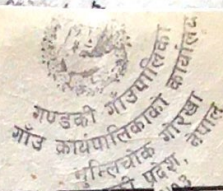 गण्डकी गाँउपालिका
गाँउ कार्यपालिकाको कार्यालय
घुम्लिचोक गोरखा
प्रदेश, नेपाल